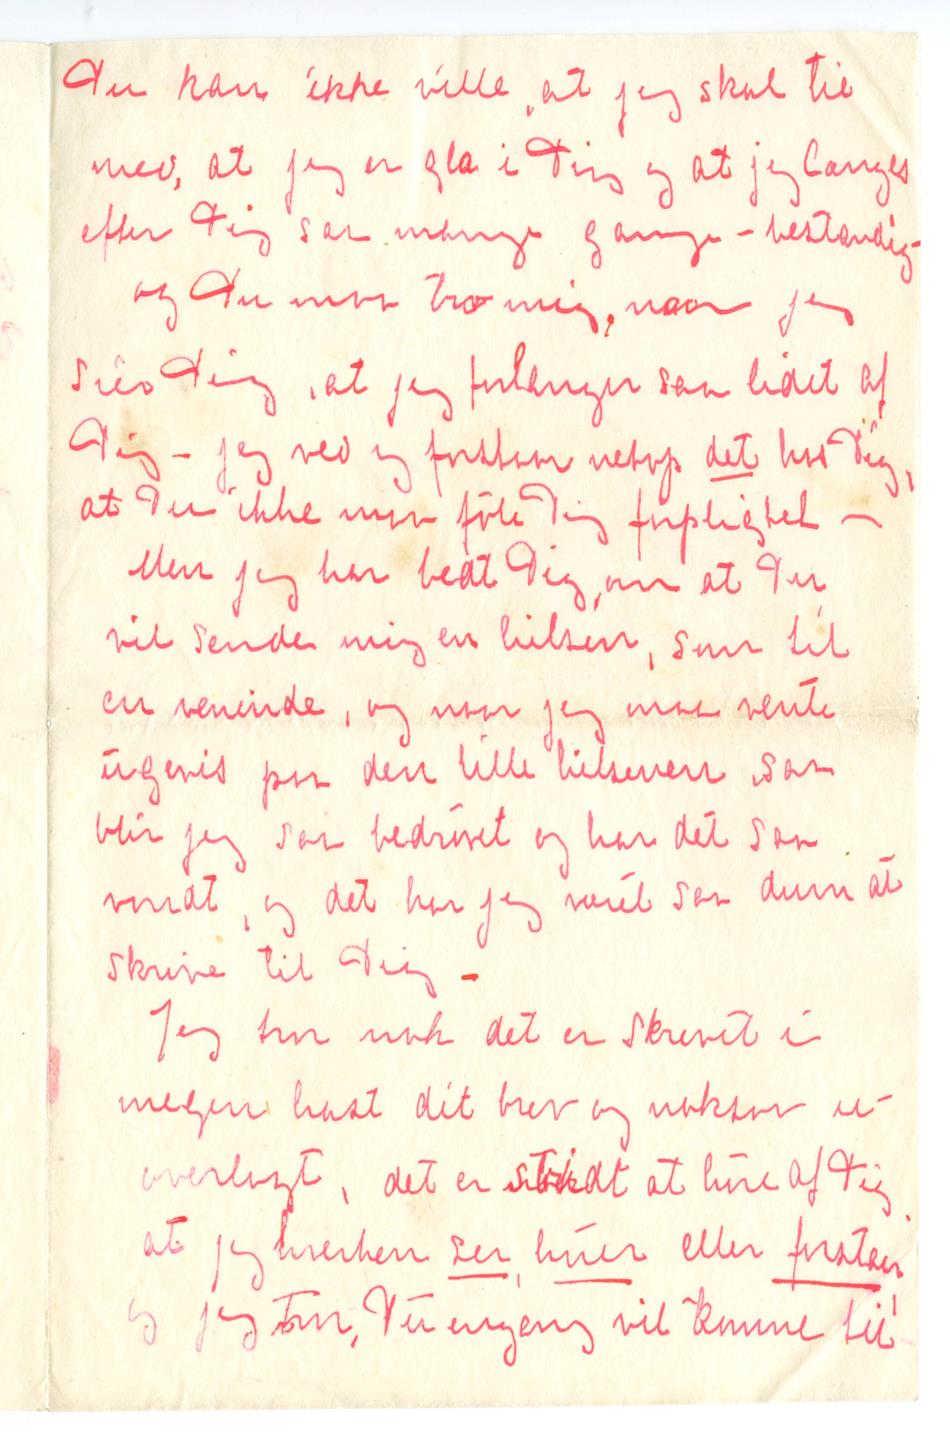 Du kan ikke ville, at jeg skal tie
med, at jeg er gla i Dig og at jeg længes
efter Dig saa mange gange – bestandig –
og Du maa tro mig, naar jeg
sier Dig, at jeg forlanger saa lidet af
Dig – jeg ved og forstaar netop det hos Dig,
at Du ikke maa föle Dig forpligtet –
Men jeg har bedt Dig, om at Du
vil sende mig en hilsen, som til
en veninde, og naar jeg maa vente
ugevis paa den lille hilsenen, saa
blir jeg saa bedrövet og har det saa
vondt, og det har jeg været saa dum at
skrive til Dig –
Jeg tror nok det er skrevet i
megen hast dit brev og noksaa u-
overlagt, det er at höre af Dig
at jeg hverken ser, hörer eller forstaar
og jeg tror, Du engang vil komme til